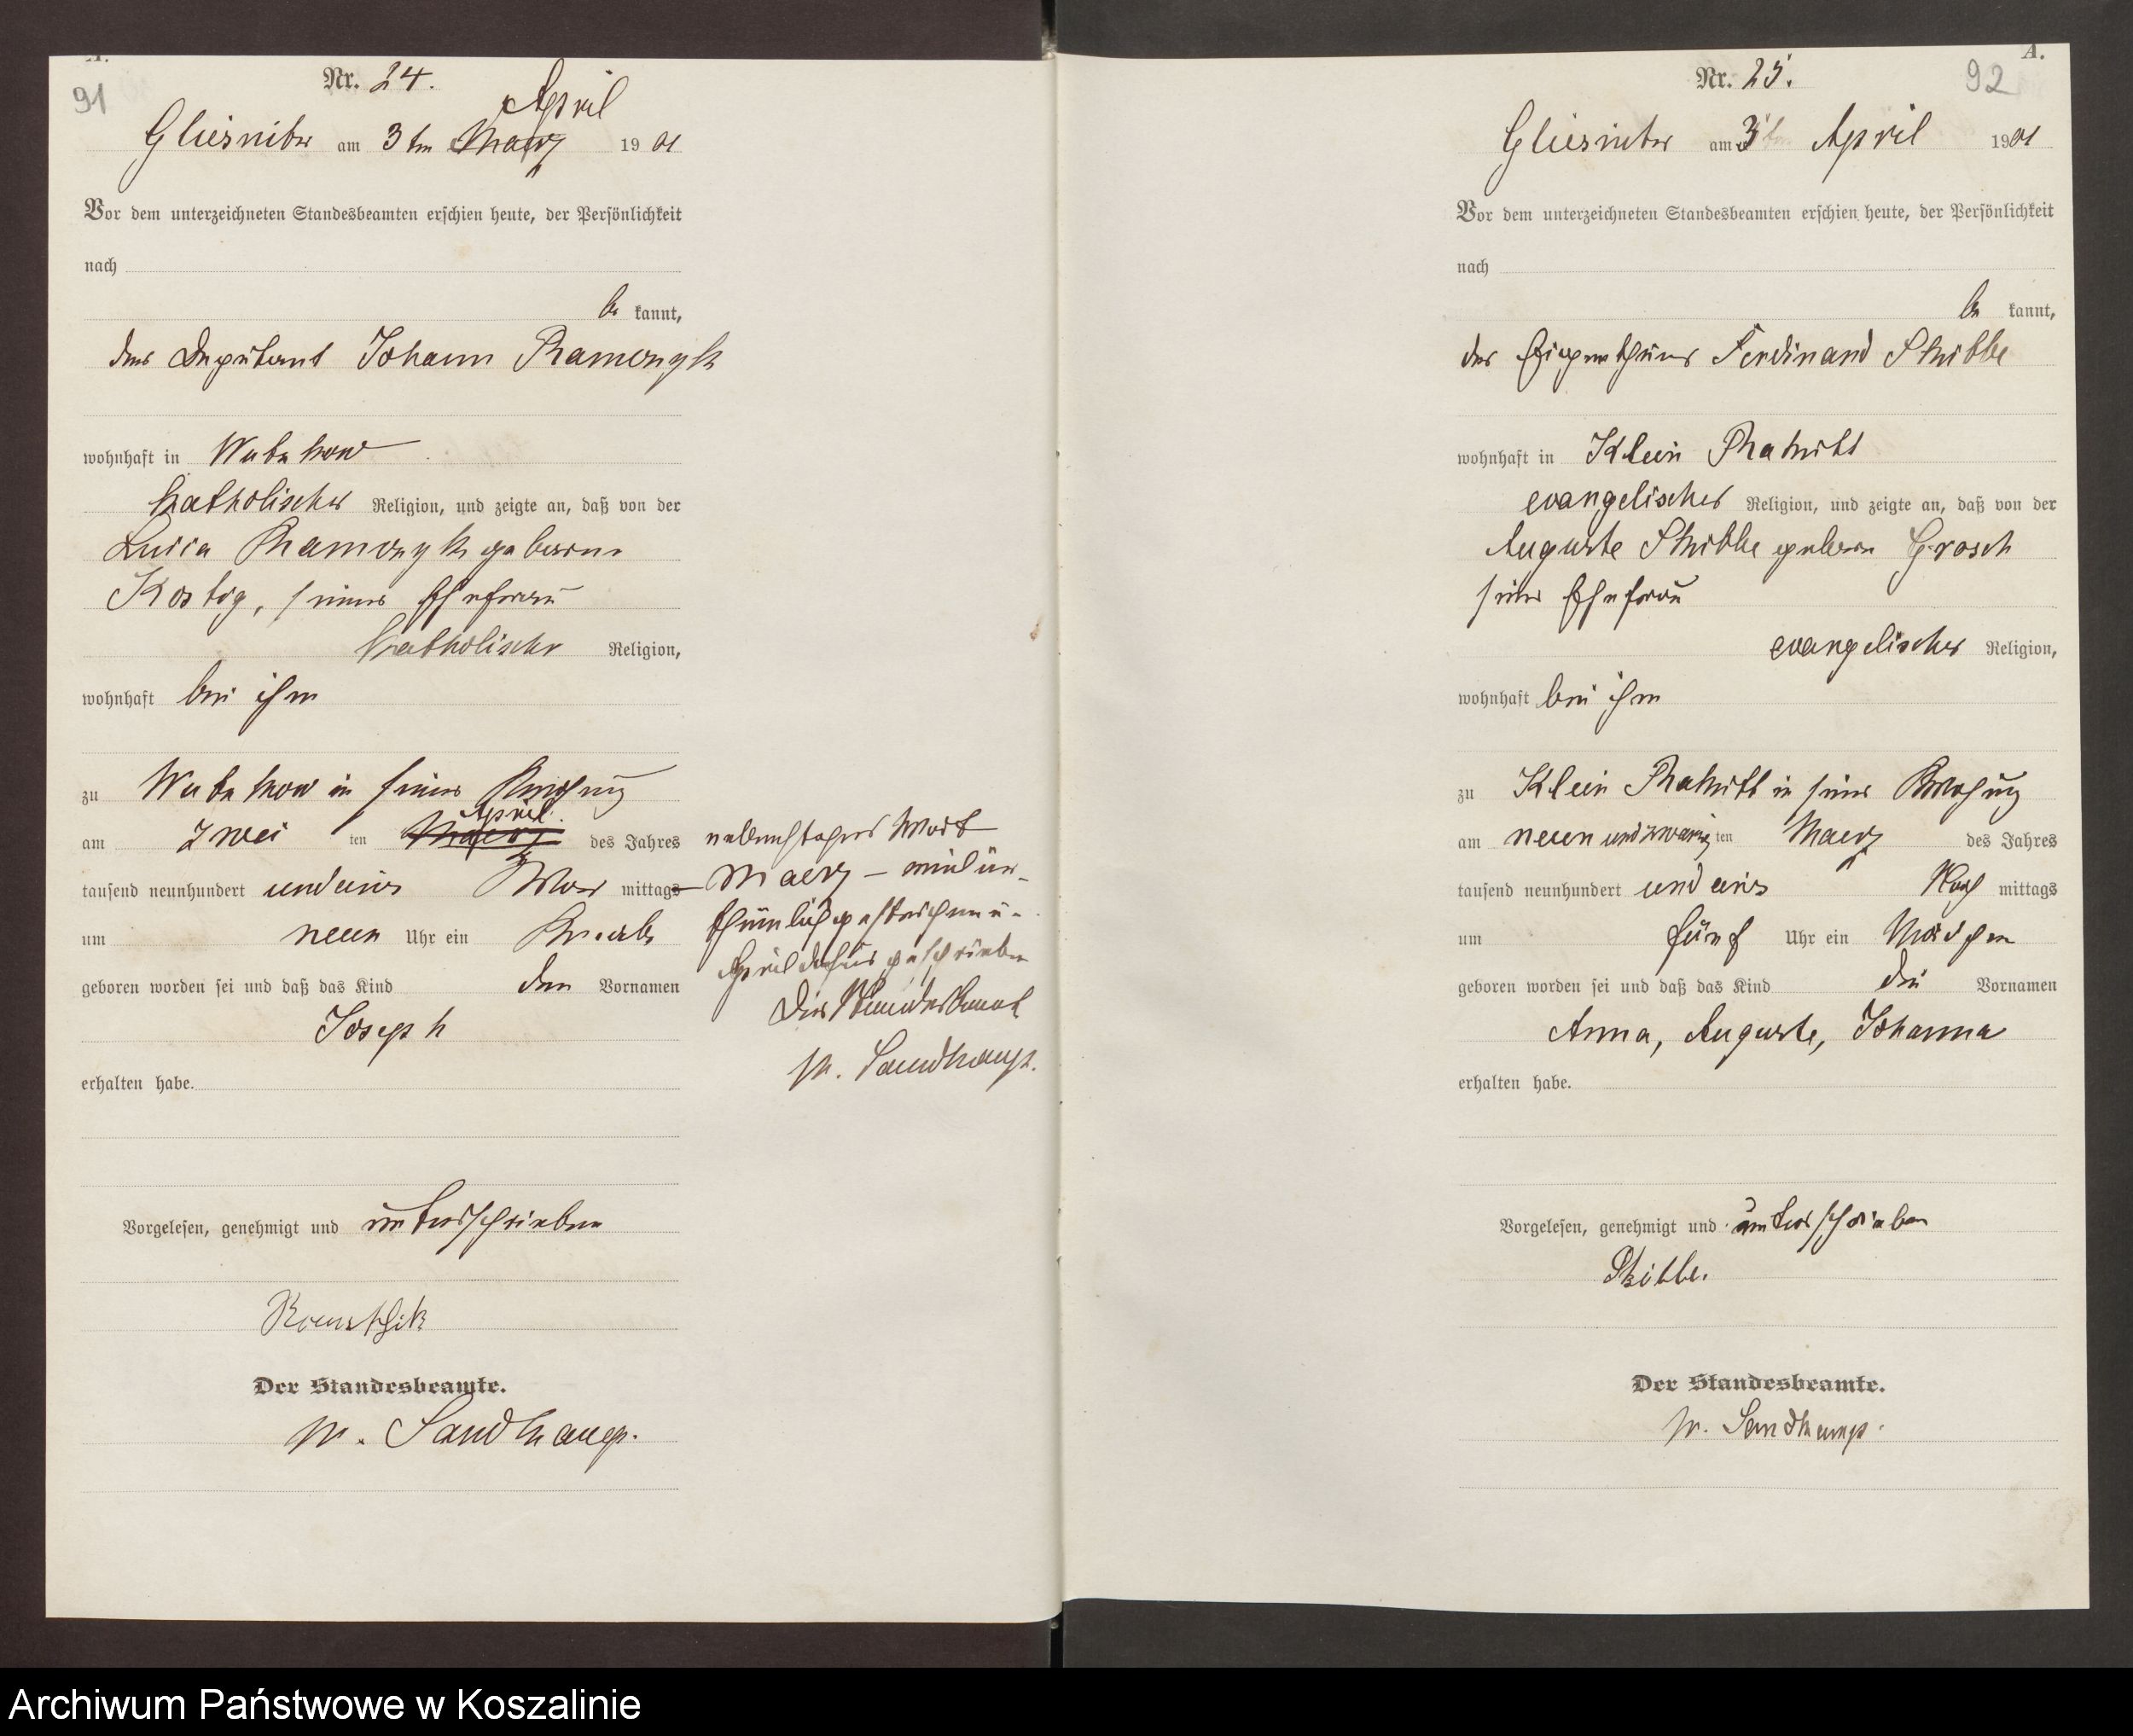 A.
91
Nr. 24.
April
Gliesnitz am 3 ten Maerz 19 01
Vor dem unterzeichneten Standesbeamten erschien heute, der Persönlichkeit
nach
be kannt,
der Deputant Johann
wohnhaft in
katholischer Religion, und zeigte an, daß von der
geborene
seiner Ehefrau
katholischer Religion,
wohnhaft bei ihm
zu in seiner Wohnung
April
am zwei ten Maerz des Jahres
tausend neunhundert und eins Vor mittags
um neun Uhr ein Knabe
geboren worden sei und daß das Kind den Vornamen
Joseph
erhalten habe.
Vorgelesen, genehmigt und unterschrieben
Der Standesbeamte.
W. Sandkamp.
nebenstehendes Wort
– Maerz – wird
gestrichen u.
April dafür geschrieben
Der Standesbeamte
W. Sandkamp.
A.
92
Nr. 25.
Gliesnitz am 3 ten April 1901
Vor dem unterzeichneten Standesbeamten erschien heute, der Persönlichkeit
nach
be kannt,
der Eigenthümer Ferdinand Skibbe
wohnhaft in Klein Rakitt
evangelischer Religion, und zeigte an, daß von der
Auguste Skibbe geborene Grosch
seiner Ehefrau
evangelischer Religion,
wohnhaft bei ihm
zu Klein Rakitt in seiner Wohnung
am neun und zwanzig ten Maerz des Jahres
tausend neunhundert und eins Nach mittags
um fünf Uhr ein Mädchen
geboren worden sei und daß das Kind die Vornamen
Anna, Auguste, Johanna
erhalten habe.
Vorgelesen, genehmigt und unterschrieben
Skibbe.
Der Standesbeamte.
W. Sandkamp.
Archiwum Państwowe w Koszalinie